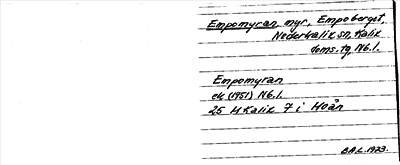 Empomyran myr, Empoberget,
Nederkalix sn, Kalix
doms. tg N6.1.
Empomyran
ek (1951) N6.1.
25 H Kalix 7 i Hoån
BAL. 1973.